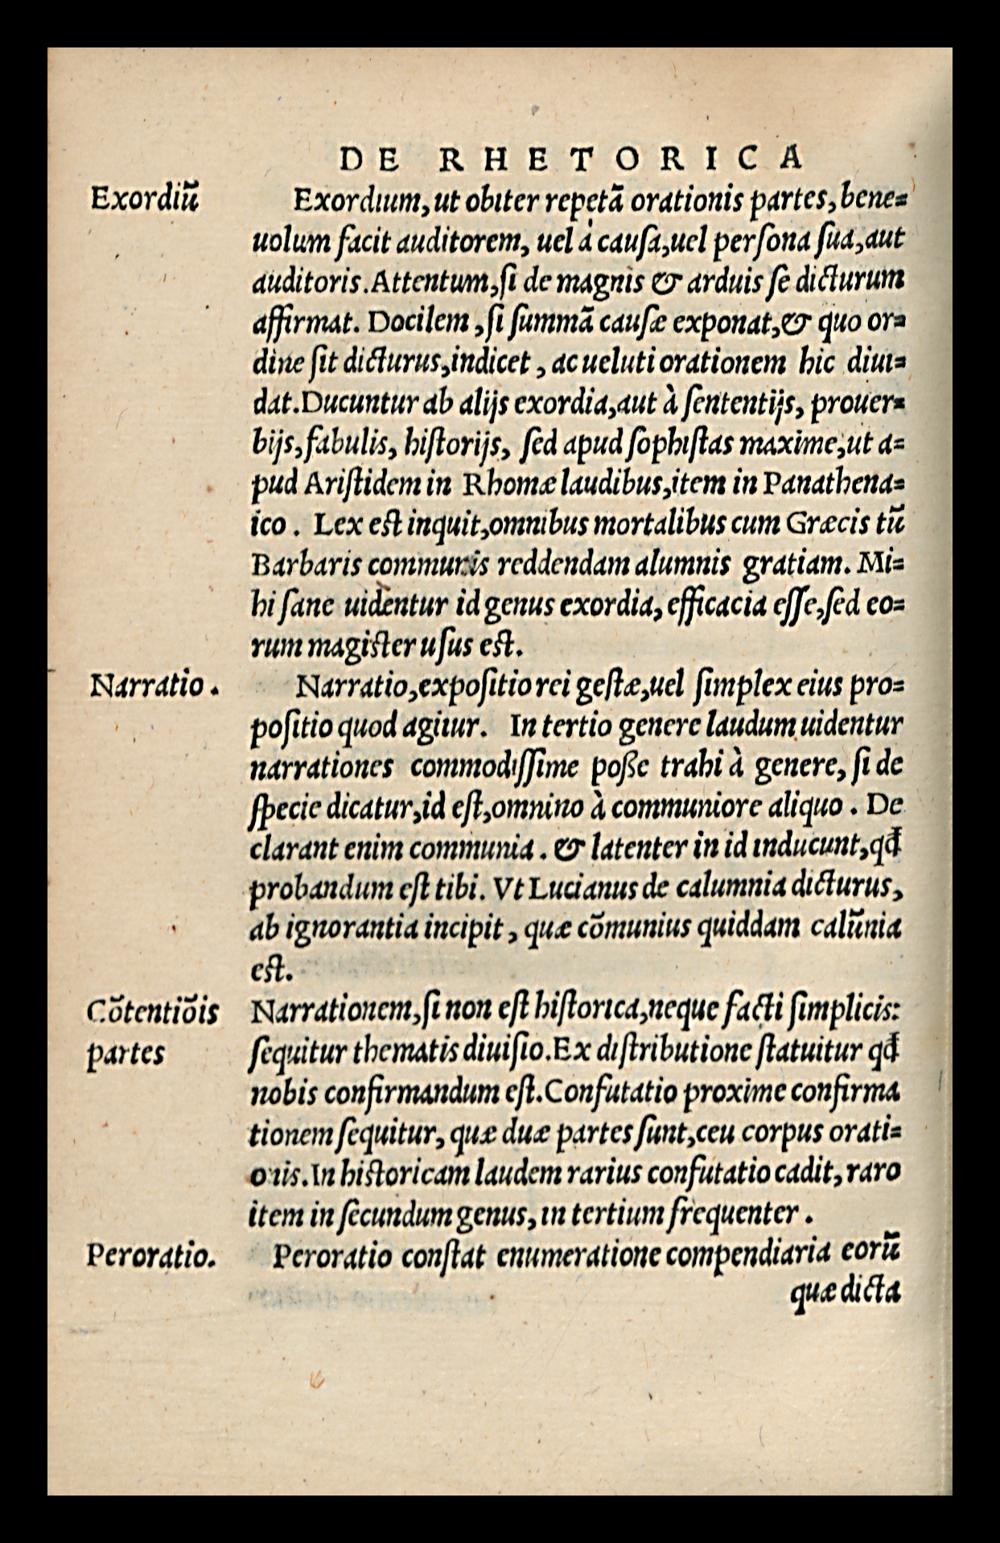 DE RHETORICA
Exordiũ
Exordium, ut obiter repetã orationis partes, bene=
uolum facit auditorem, uel à causa, uel persona sua, aut
auditoris. Attentum, si de magnis & arduis se dicturum
affirmat. Docilem, si summã causæ exponat, & quo or=
dine sit dicturus, indicet, ac ueluti orationem hic diui=
dat. Ducuntur ab alijs exordia, aut à sententijs, prouer=
bijs, fabulis, historijs, sed apud sophistas maxime, ut a=
pud Aristidem in Rhomæ laudibus, item in Panathena=
ico. Lex est inquit, omnibus mortalibus cum Græcis tũ
Barbaris communis reddendam alumnis gratiam. Mi=
hi sane uidentur id genus exordia, efficacia esse, sed eo=
rum magister usus est.
Narratio.
Narratio, expositio rei gestæ, uel simplex eius pro=
positio quod agitur. In tertio genere laudum uidentur
narrationes commodissime poße trahi à genere, si de
specie dicatur, id est, omnino à communiore aliquo. De
clarant enim communia. & latenter in id inducunt, qđ
probandum est tibi. Vt Lucianus de calumnia dicturus,
ab ignorantia incipit, quæ cõmunius quiddam calũnia
est.
Cõtentiõis
partes
Narrationem, si non est historica, neque facti simplicis:
sequitur thematis diuisio. Ex distributione statuitur qđ
nobis confirmandum est. Confutatio proxime confirma
tionem sequitur, quæ duæ partes sunt, ceu corpus orati=
onis. In historicam laudem rarius confutatio cadit, raro
item in secundum genus, in tertium frequenter.
Peroratio.
Peroratio constat enumeratione compendiaria eorũ
quæ dicta